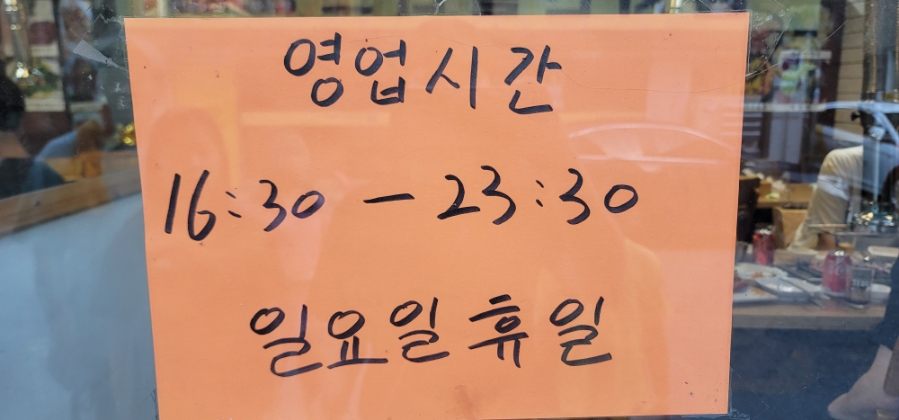 영업시간
16:30 - 23:30
일요일 휴일